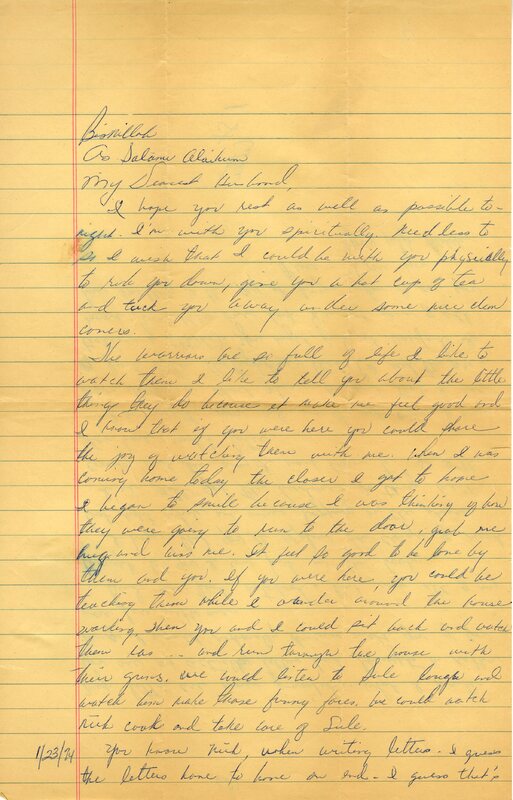 Bismillah
As Salamu Alaikum
My Dearest Husband,
I hope you rest as well as possible to-
night. I'm with you spiritually. Needless to
so I wish that I could be with you physically
to rub you down, give you a hot cup of tea
and tuck you away under some nice clean
covers.
The warriors are so full of life I like to
watch them I like to tell you about the little
things they do because it make me feel good and
I know that if you were here you could share
the joy of watching them with me. When I was
coming home today the closer I got to home
I began to smile because I was thinking of how
they were going to run to the door, grab me
hug and kiss me. It feel so good to be love by
them and you. If you were here you could be
teaching them while I wander around the house
working, then you and I could sit back and watch
them . . and run through the house with
their guns. We would listen to Sule laugh and
watch him make those funny faces. We could watch
cook and take care of Sule.
You know, when writing letters - I guess
1/23/74
the letters have to have an end - I guess that's